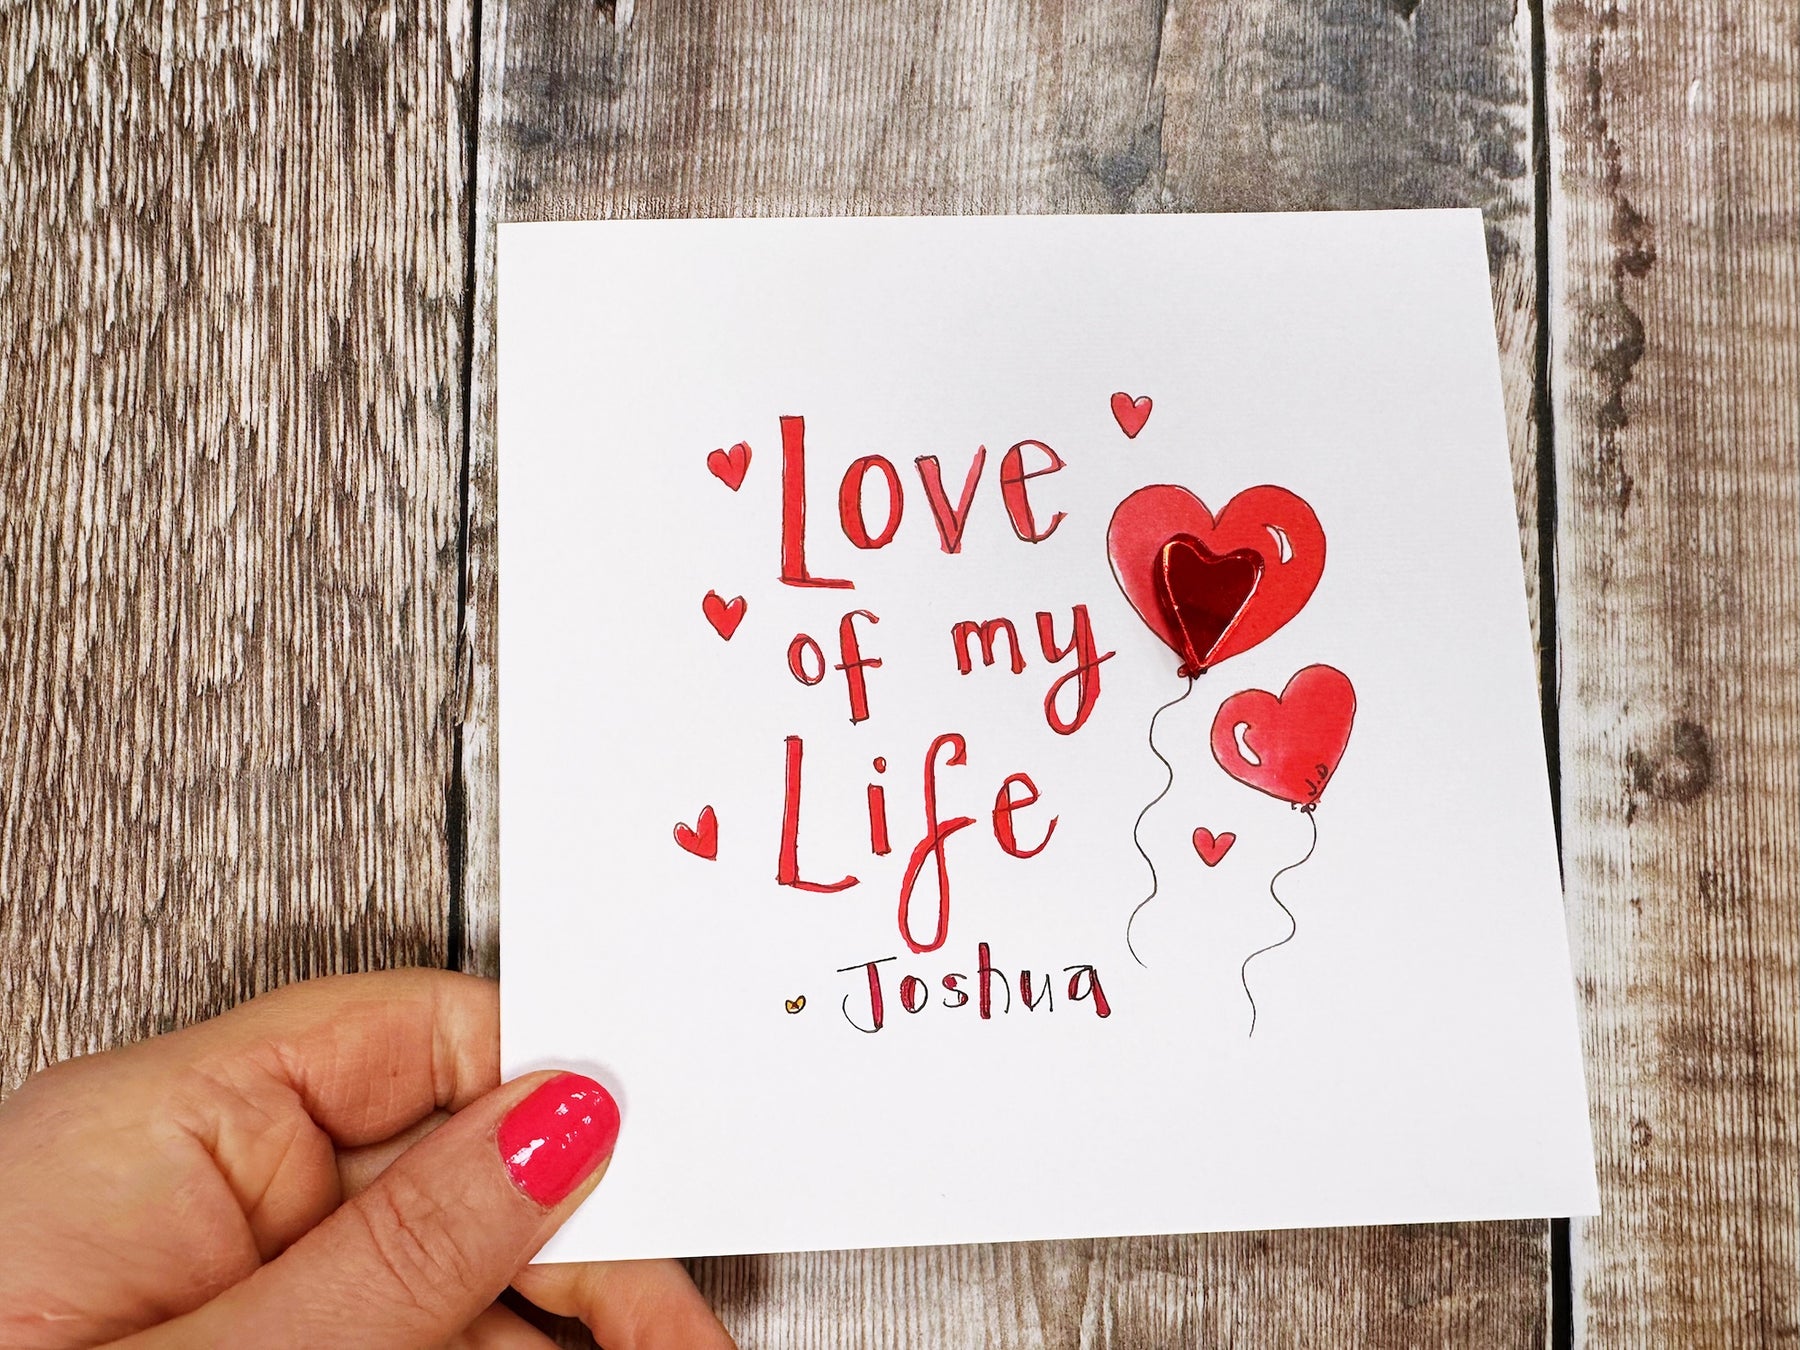 Love
of my
Life
Joshua
J.D